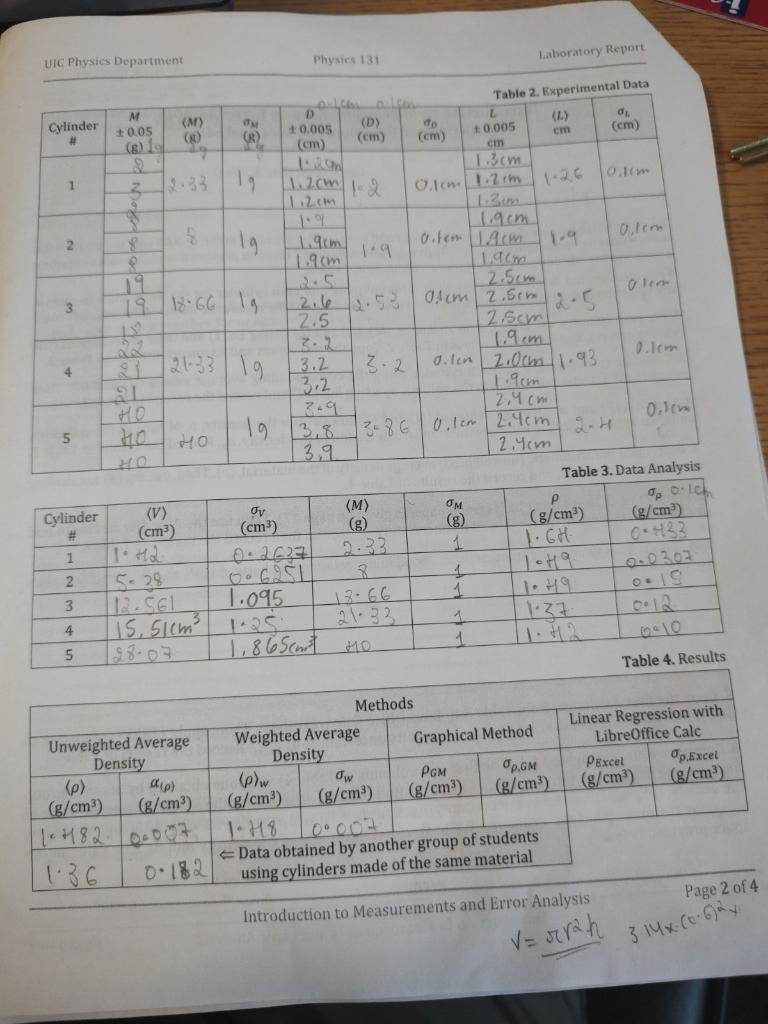 UIC Physics Department Physics 131 Laboratory Report
Table 2. Experimental Data
0.1cm 0.1cm
Cylinder # M ± 0.05 (g) 1g ⟨M⟩ (g) 1g σM (g) 1g D ± 0.005 (cm) ⟨D⟩ (cm) σD (cm) L ± 0.005 cm ⟨L⟩ cm σL (cm)
2 1.2cm 1.3cm
1 3 2.33 1g 1.2cm 1.2 0.1cm 1.2cm 1.26 0.1cm
2 1.2cm 1.3cm
8 1.9 1.9cm
2 8 8 1g 1.9cm 1.9 0.1cm 1.9cm 1.9 0.1cm
8 1.9cm 1.9cm
19 2.5 2.5cm
3 19 18.66 1g 2.6 2.53 0.1cm 2.5cm 2.5 0.1cm
18 2.5 2.5cm
22 3.2 1.9cm
4 21 21.33 1g 3.2 3.2 0.1cm 2.0cm 1.93 0.1cm
21 3.2 1.9cm
40 3.9 2.4cm
5 40 40 1g 3.8 3.86 0.1cm 2.4cm 2.4 0.1cm
40 3.9 2.4cm
Table 3. Data Analysis
Cylinder # ⟨V⟩ (cm³) σV (cm³) ⟨M⟩ (g) σM (g) ρ (g/cm³) σρ 0.1cm (g/cm³)
1 1.42 0.2637 2.33 1 1.64 0.433
2 5.38 0.6251 8 1 1.49 0.0307
3 12.561 1.095 18.66 1 1.49 0.15
4 15.51cm³ 1.25 21.33 1 1.37 0.12
5 28.07 1.865cm³ 40 1 1.42 0.10
Table 4. Results
Methods
Unweighted Average Density Weighted Average Density Graphical Method Linear Regression with LibreOffice Calc
⟨ρ⟩ (g/cm³) α⟨ρ⟩ (g/cm³) ⟨ρ⟩w (g/cm³) σw (g/cm³) ρGM (g/cm³) σρ,GM (g/cm³) ρExcel (g/cm³) σρ,Excel (g/cm³)
1.482 0.007 1.48 0.007
1.36 0.182 ⇐ Data obtained by another group of students
using cylinders made of the same material
Introduction to Measurements and Error Analysis Page 2 of 4
V = πr²h 3.14×(0.6)²×